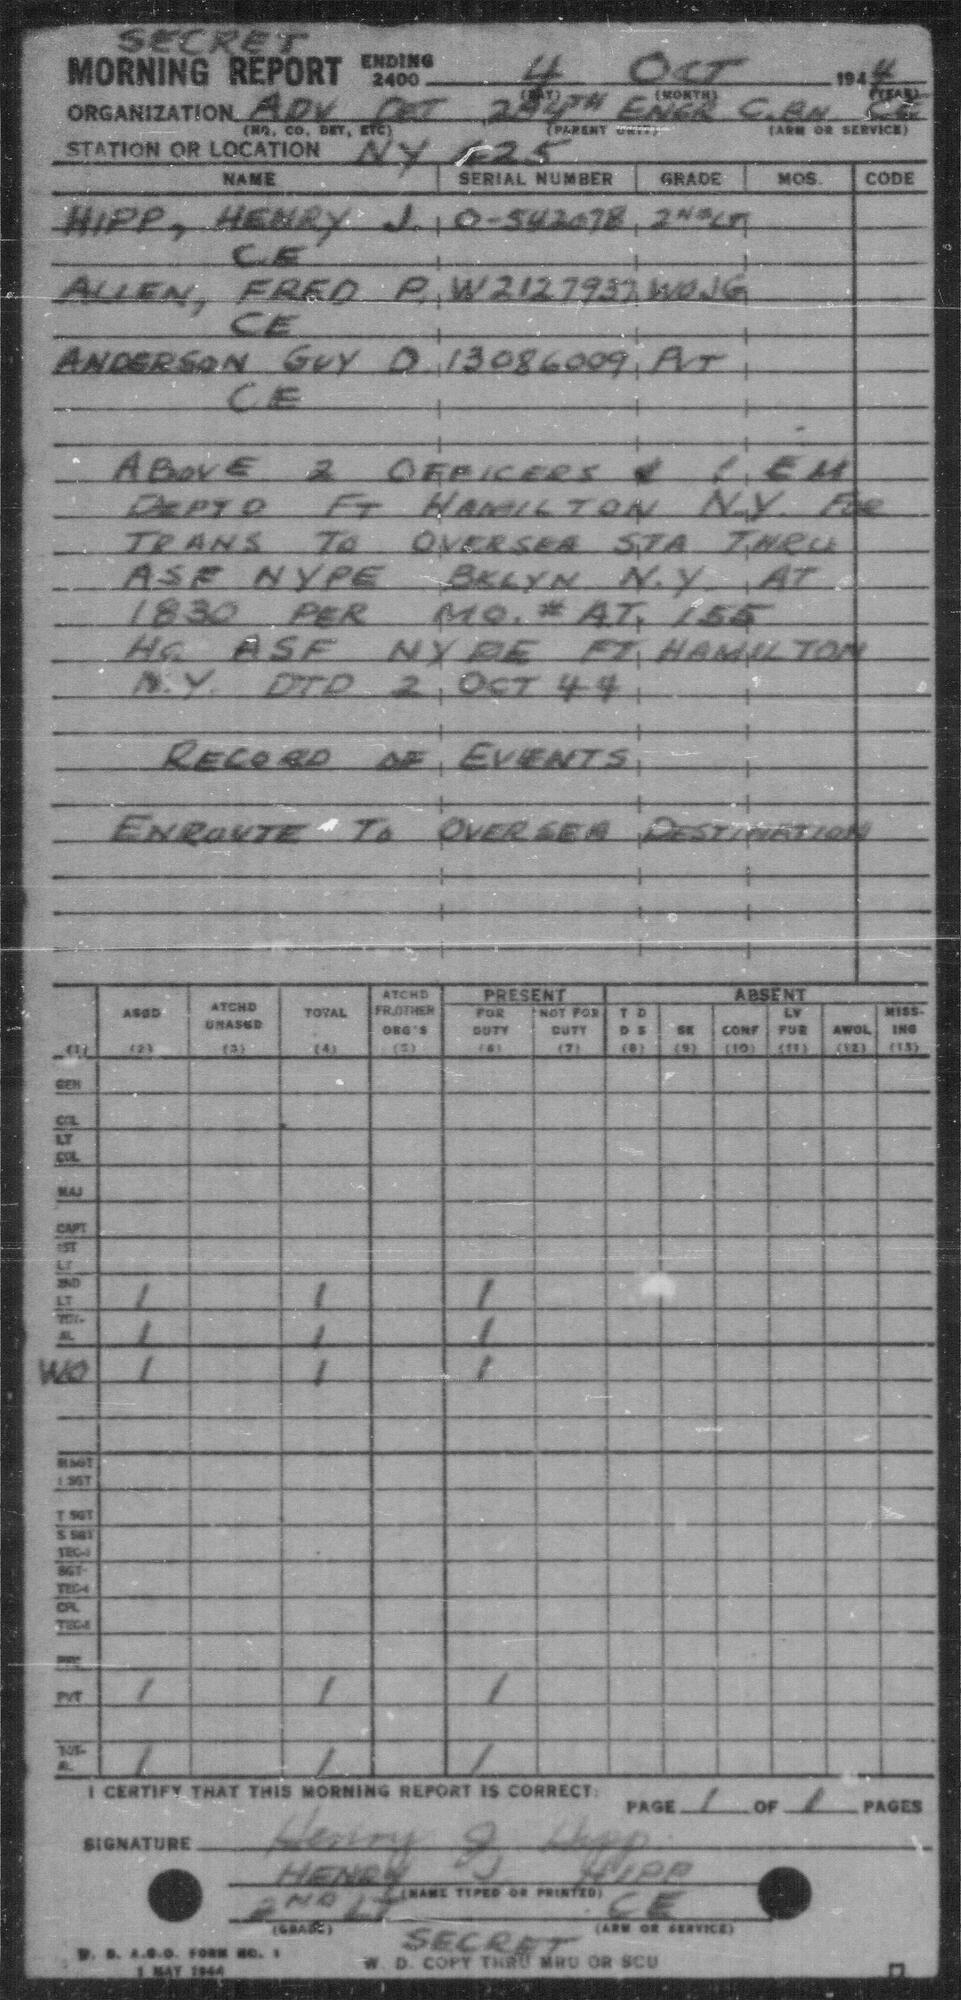 SECRET
MORNING REPORT ENDING 2400 4 OCT 1944
(DAY) (MONTH) (YEAR)
ORGANIZATION ADV DET 284TH ENGR C.BN CE
(HQ, CO, DET, ETC) (PARENT UNIT) (ARM OR SERVICE)
STATION OR LOCATION NY
NAME SERIAL NUMBER GRADE MOS. CODE
HIPP, HENRY J. O-542078 2ND LT
CE
ALLEN, FRED P. W2127937 WOJG
CE
ANDERSON GUY D. 13086009 PVT
CE
ABOVE 2 OFFICERS & 1 EM
DEPTD FT HAMILTON N.Y. FOR
TRANS TO OVERSEA STA THRU
ASF NYPE BKLYN N.Y AT
1830 PER MO. # AT. 155
HQ ASF NYPE FT HAMILTON
N.Y. DTD 2 OCT 44
RECORD OF EVENTS
ENROUTE TO OVERSEA DESTINATION
PRESENT ABSENT
ASGD ATCHD UNASGD TOTAL ATCHD FR.OTHER ORG'S FOR DUTY NOT FOR DUTY T D D S SK CONF LV FUR AWOL MISS-ING
(1) (2) (3) (4) (5) (6) (7) (8) (9) (10) (11) (12) (13)
GEN
COL
LT COL
MAJ
CAPT
1ST LT
2ND LT 1 1 1
TOT-AL 1 1 1
WO 1 1 1
M SGT
1 SGT
T SGT
S SGT
TEC-3
SGT
TEC-4
CPL
TEC-5
PFC
PVT 1 1 1
TOT-AL 1 1 1
I CERTIFY THAT THIS MORNING REPORT IS CORRECT:
PAGE 1 OF 1 PAGES
SIGNATURE Henry J Hipp
HENRY J HIPP
(NAME TYPED OR PRINTED)
2ND LT CE
(GRADE) (ARM OR SERVICE)
SECRET
W. D. A.G.O. FORM NO. 1
1 MAY 1944
W. D. COPY THRU MRU OR SCU